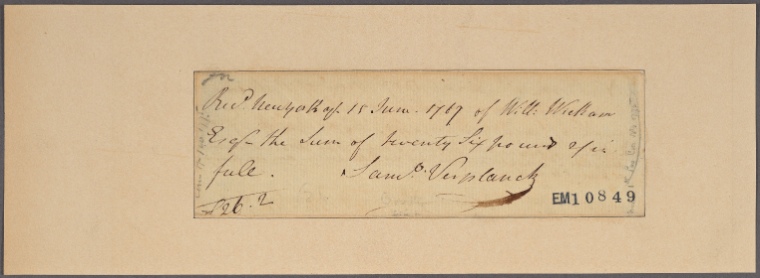 Rec.d New York 15 Jan. 1769 of Will.m Wickham
Esq.r the Sum of twenty Six pound 2/ in
full. Sam.l Verplanck
£26.2
EM10849